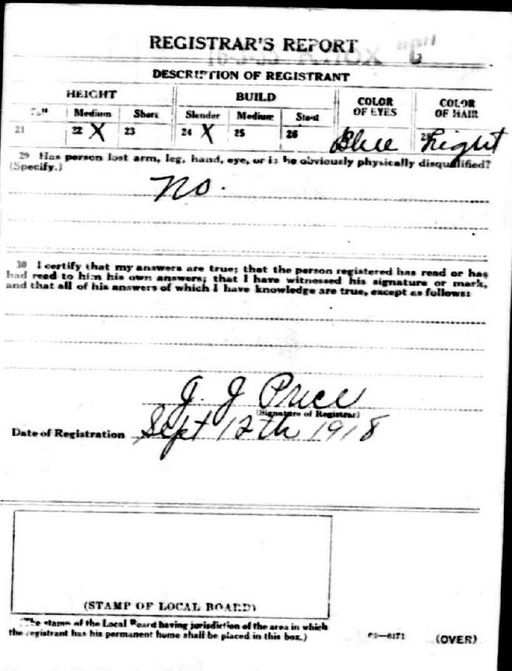 REGISTRAR'S REPORT
DESCRIPTION OF REGISTRANT
HEIGHT BUILD COLOR OF EYES COLOR OF HAIR
Medium Short Slender Medium Stout
21 22 X 23 24 X 25 26 Blue 28 Light
29 Has person lost arm, leg, hand, eye, or is he obviously physically disqualified?
(Specify.)
No.
30 I certify that my answers are true; that the person registered has read or has
had read to him his own answers; that I have witnessed his signature or mark,
and that all of his answers of which I have knowledge are true, except as follows:
J. J Price
(Signature of Registrar)
Date of Registration Sept 12th 1918
(STAMP OF LOCAL BOARD)
(The stamp of the Local Board having jurisdiction of the area in which
the registrant has his permanent home shall be placed in this box.)
03—6171 (OVER)